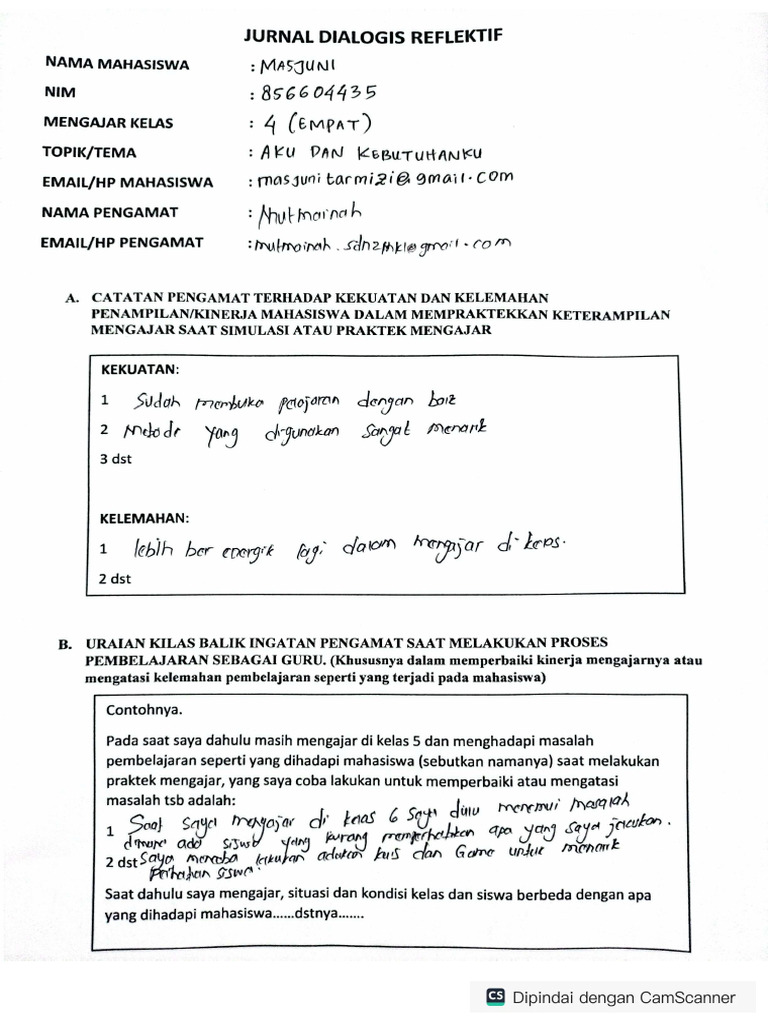 JURNAL DIALOGIS REFLEKTIF
NAMA MAHASISWA : MASJUNI
NIM : 856604435
MENGAJAR KELAS : 4 (EMPAT)
TOPIK/TEMA : AKU DAN KEBUTUHANKU
EMAIL/HP MAHASISWA : masjunitarmizi@gmail.com
NAMA PENGAMAT : Mutmainah
EMAIL/HP PENGAMAT :
A. CATATAN PENGAMAT TERHADAP KEKUATAN DAN KELEMAHAN
PENAMPILAN/KINERJA MAHASISWA DALAM MEMPRAKTEKKAN KETERAMPILAN
MENGAJAR SAAT SIMULASI ATAU PRAKTEK MENGAJAR
KEKUATAN:
1 Sudah membuka pelajaran dengan baik
2 Metode yang di-gunakan sangat menarik
3 dst
KELEMAHAN:
1 lebih ber energik lagi dalam mengajar di-kelas.
2 dst
B. URAIAN KILAS BALIK INGATAN PENGAMAT SAAT MELAKUKAN PROSES
PEMBELAJARAN SEBAGAI GURU. (Khususnya dalam memperbaiki kinerja mengajarnya atau
mengatasi kelemahan pembelajaran seperti yang terjadi pada mahasiswa)
Contohnya.
Pada saat saya dahulu masih mengajar di kelas 5 dan menghadapi masalah
pembelajaran seperti yang dihadapi mahasiswa (sebutkan namanya) saat melakukan
praktek mengajar, yang saya coba lakukan untuk memperbaiki atau mengatasi
masalah tsb adalah:
1 Saat saya mengajar di kelas 6 saya dulu menemui masalah
dimana ada siswa yang kurang memperhatikan apa yang saya jelaskan.
2 dst Saya mencoba lakukan adakan kuis dan Game untuk menarik
Perhatian siswa.
Saat dahulu saya mengajar, situasi dan kondisi kelas dan siswa berbeda dengan apa
yang dihadapi mahasiswa......dstnya.......
CS Dipindai dengan CamScanner